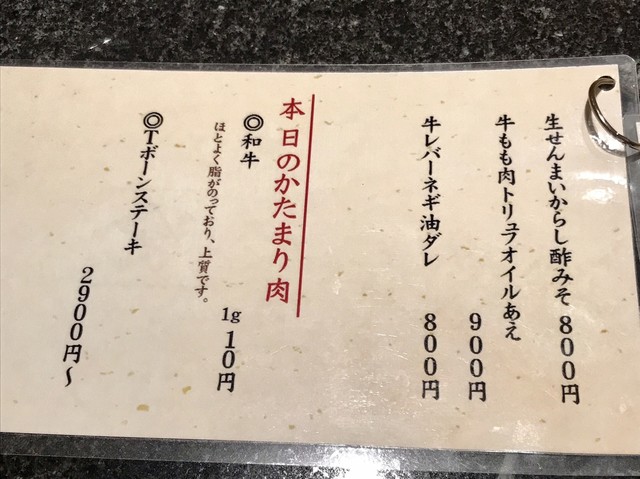 生せんまいからし酢みそ 800円
牛もも肉トリュフオイルあえ
900円
牛レバーネギ油ダレ 800円
本日のかたまり肉
◎和牛
ほとよく脂がのっており、上質です。
1g 10円
◎Tボーンステーキ
2900円～